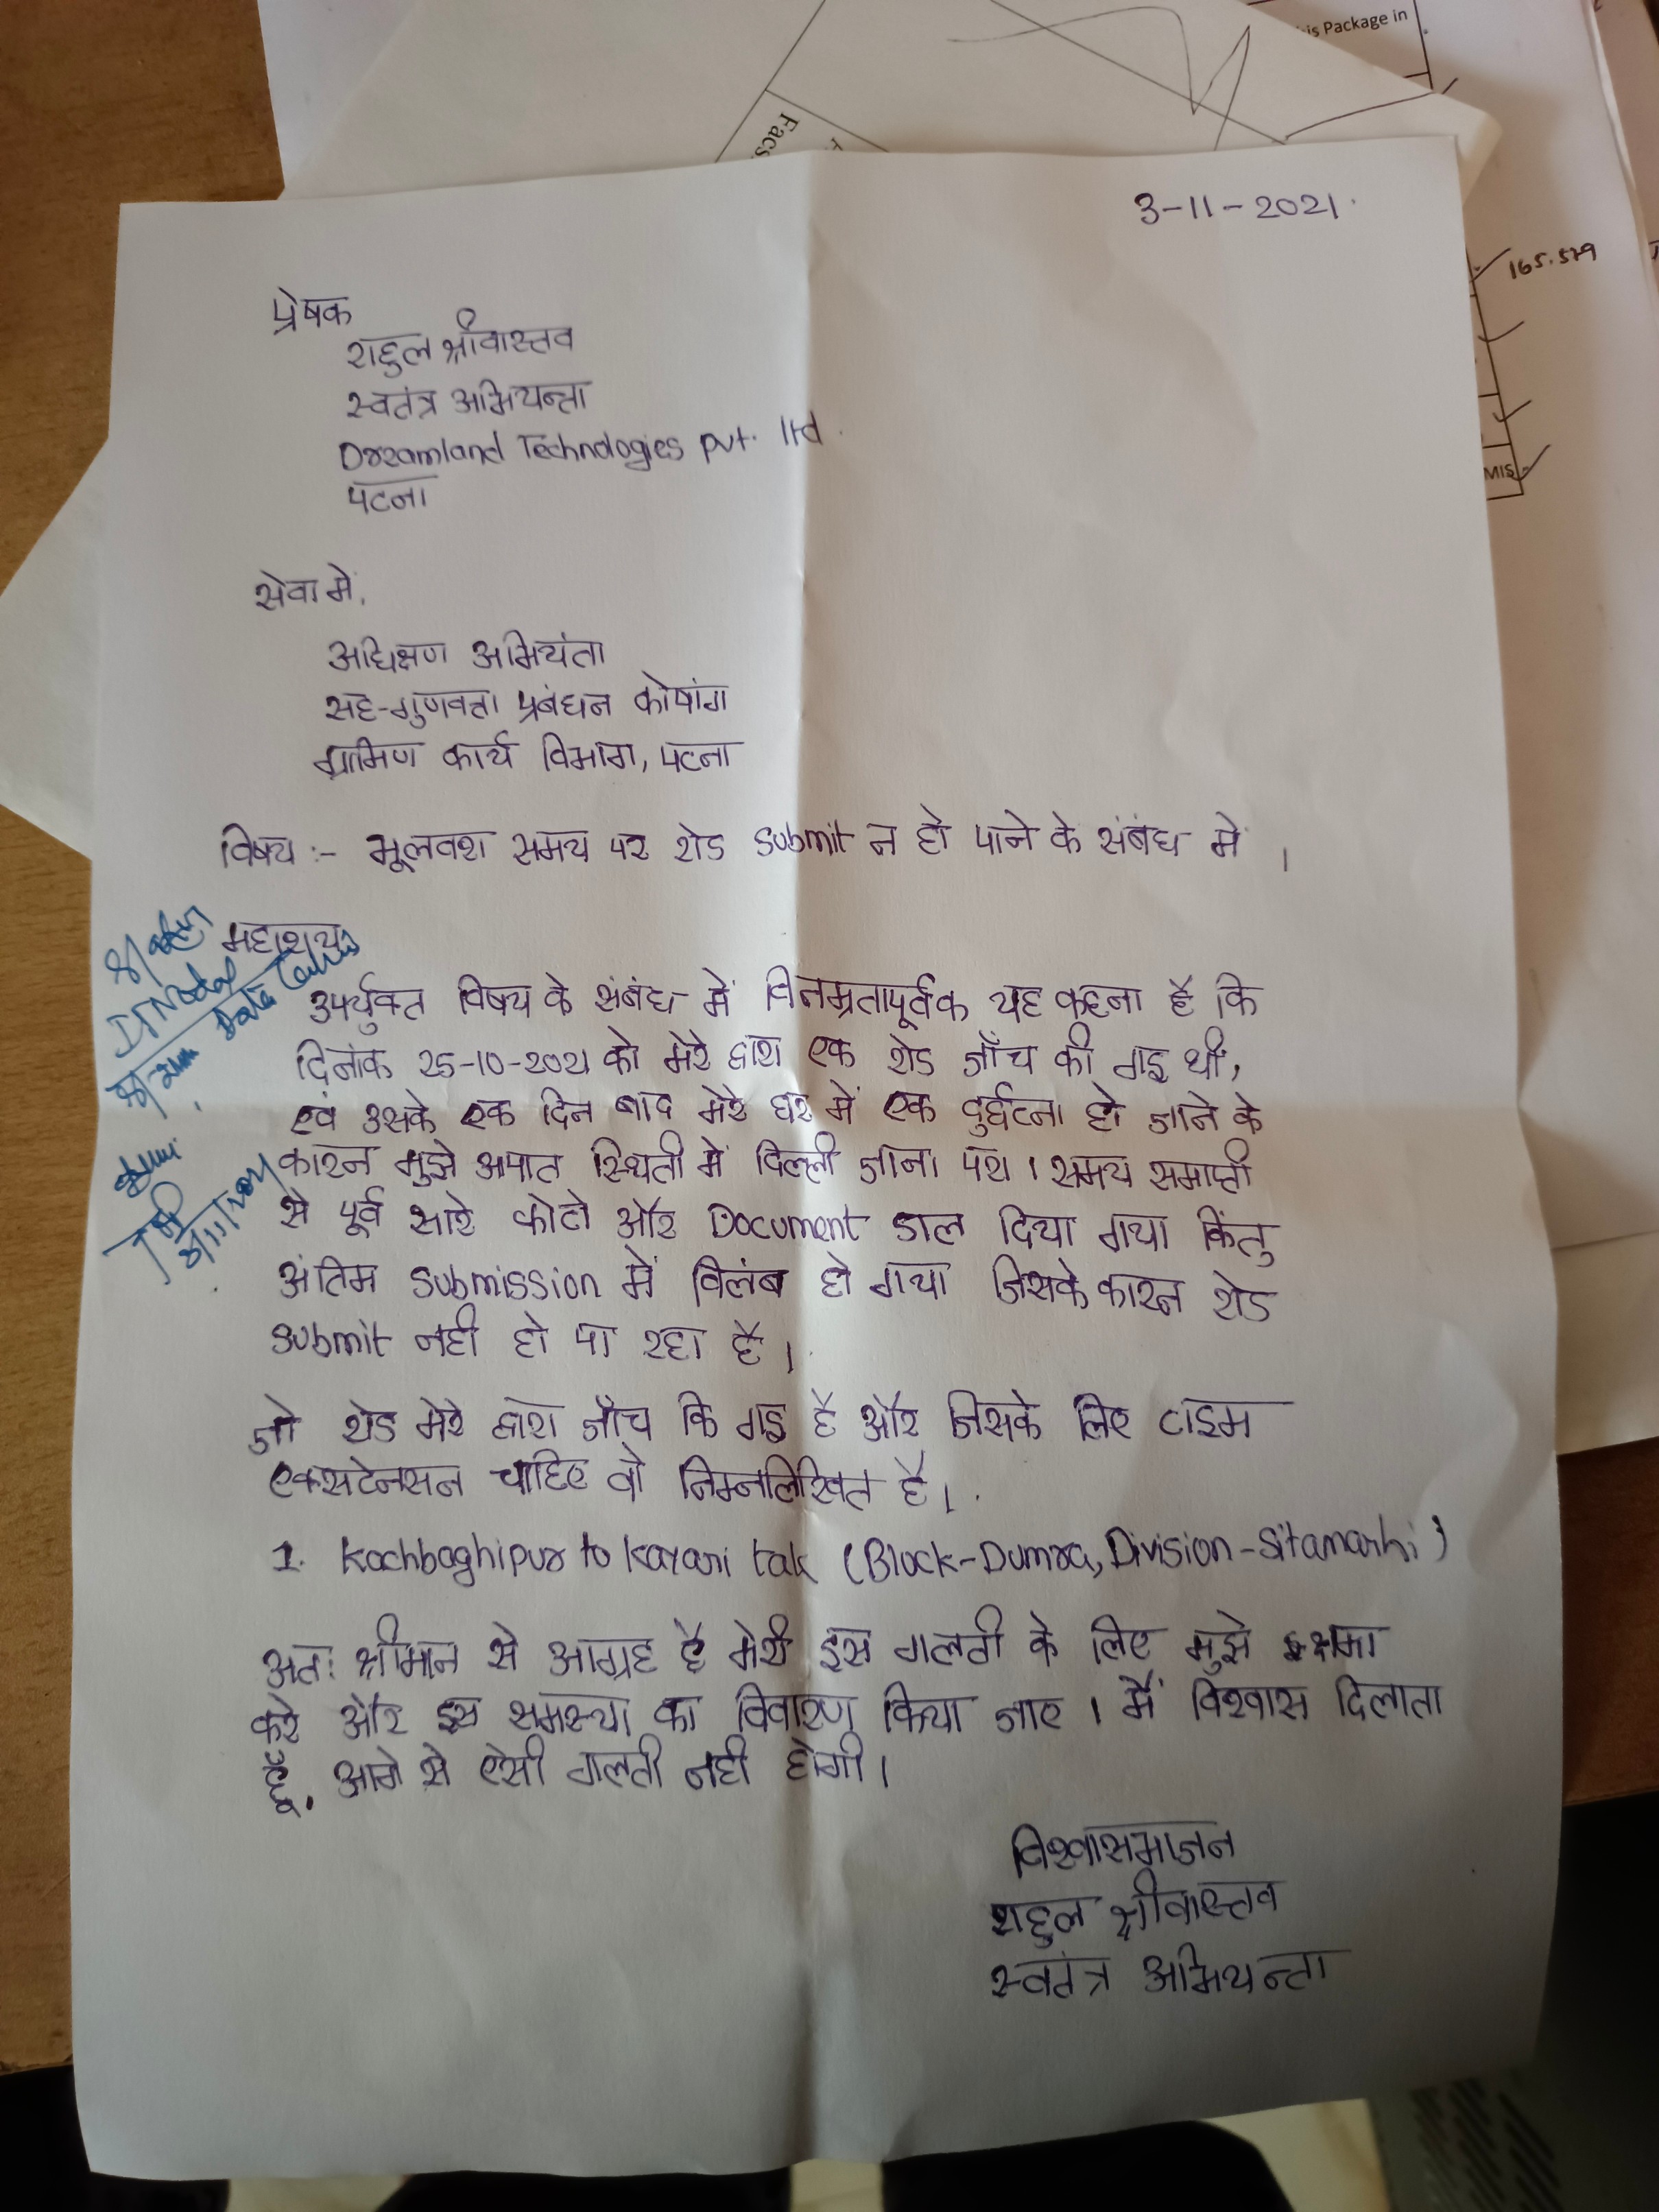 is Package in
Facs
165.579
MIS
3-11-2021.
प्रेषक
राहुल श्रीवास्तव
स्वतंत्र अभियन्ता
Dreamland Technologies pvt. ltd.
पटना
सेवा में,
अधिक्षण अभियंता
सह-गुणवत्ता प्रबंधन कोषांग
ग्रामिण कार्य विभाग, पटना
विषय :- भूलवश समय पर रोड submit न हो पाने के संबंध में ।
महाशय,
उपर्युक्त विषय के संबंध में विनम्रतापूर्वक यह कहना है कि
दिनांक 25-10-2021 को मेरे द्वारा एक रोड जाँच की गइ थी,
एवं उसके एक दिन बाद मेरे घर में एक दुर्घटना हो जाने के
कारन मुझे अपात स्थिती में दिल्ली जाना परा । समय समाप्ती
से पूर्व सारे फोटो और Document डाल दिया गया किंतु
अंतिम submission में विलंब हो गया जिसके कारन रोड
submit नही हो पा रहा है ।
जो रोड मेरे द्वारा जाँच कि गइ है और जिसके लिए टाइम
एक्सटेनसन चाहिए वो निम्नलिखित है ।
1. Kachbaghipur to Karani tak (Block-Dumra, Division-Sitamarhi)
अतः श्रीमान से आग्रह है मेरी इस गलती के लिए मुझे क्षमा
करे और इस समस्या का विवारण किया जाए । मैं विश्वास दिलाता
हूँ, आगे से ऐसी गलती नही होगी ।
विश्वासभाजन
राहुल श्रीवास्तव
स्वतंत्र अभियन्ता